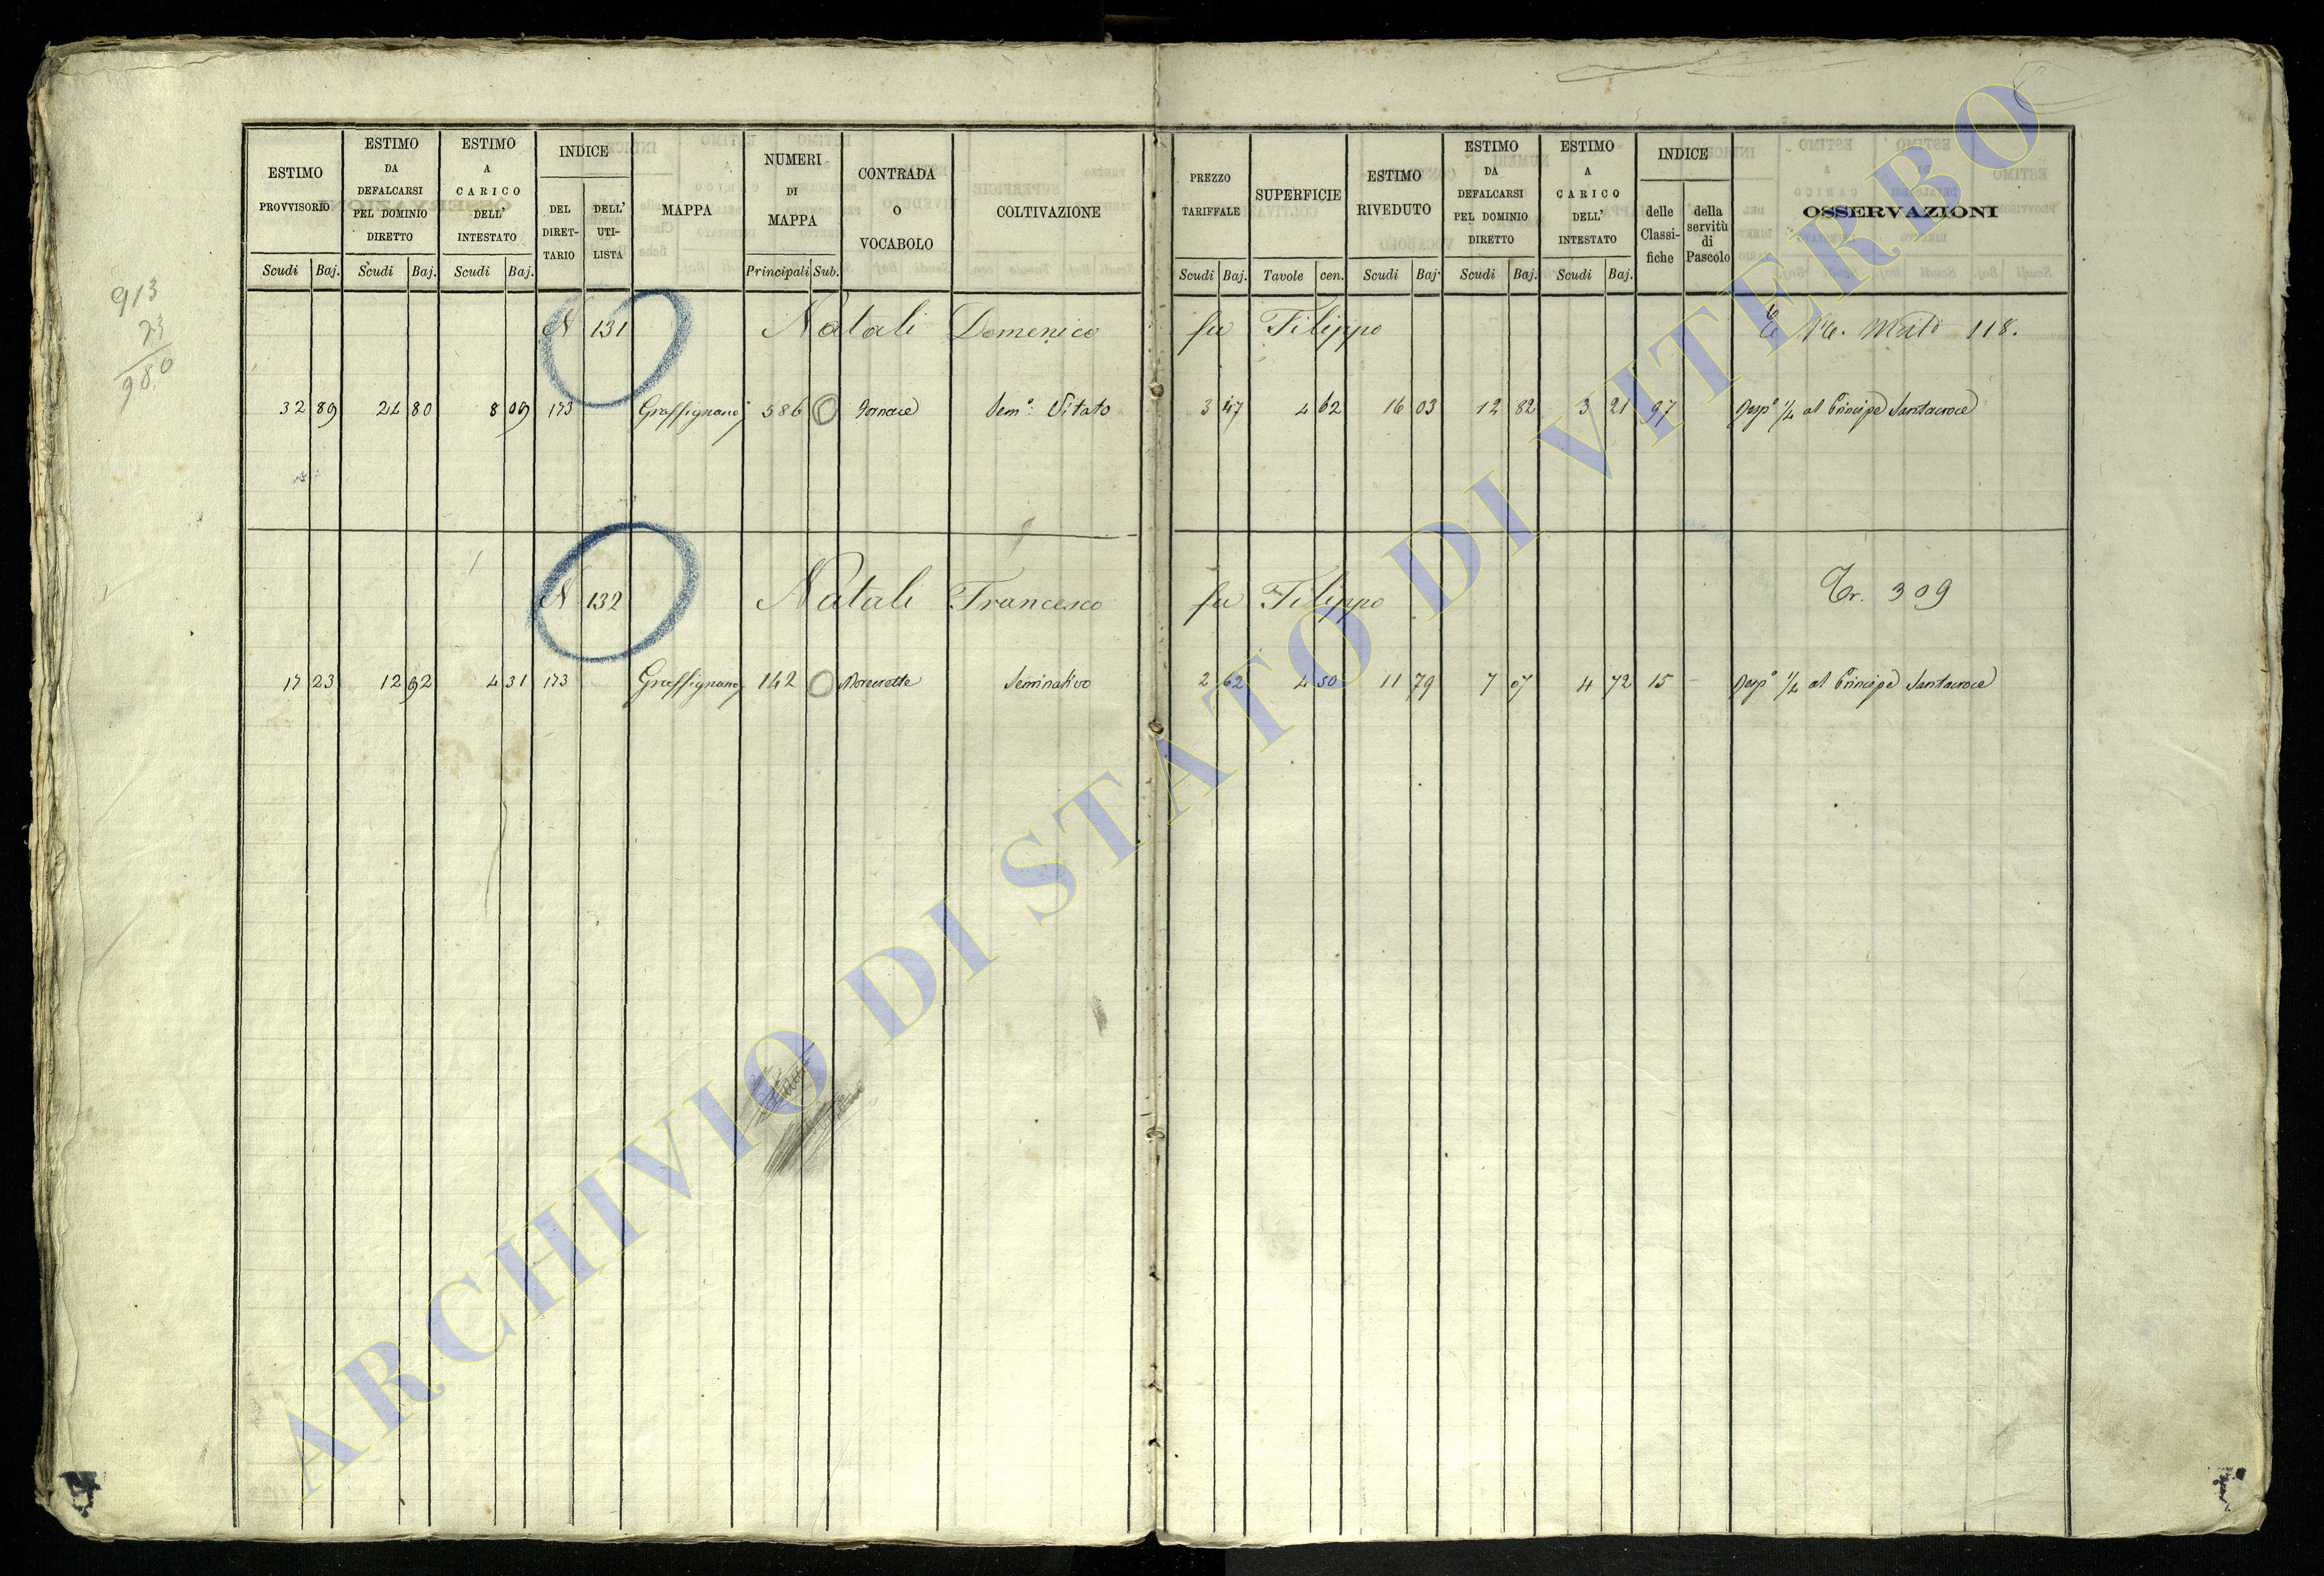 ESTIMO PROVVISORIO
ESTIMO DA DEFALCARSI PEL DOMINIO DIRETTO
ESTIMO A CARICO DELL' INTESTATO
INDICE
DEL DIRET-TARIO
DELL' UTI-LISTA
MAPPA
NUMERI DI MAPPA
CONTRADA O VOCABOLO
COLTIVAZIONE
PREZZO TARIFFALE
SUPERFICIE
ESTIMO RIVEDUTO
ESTIMO DA DEFALCARSI PEL DOMINIO DIRETTO
ESTIMO A CARICO DELL' INTESTATO
INDICE
delle Classi-fiche
della servitù di Pascolo
OSSERVAZIONI
Scudi Baj. Scudi Baj. Scudi Baj. Principali Sub. Scudi Baj. Tavole cen. Scudi Baj. Scudi Baj. Scudi Baj.
913
23
980
N 131 Natali Domenico fu Filippo 118.
32 89 24 80 8 09 173 Graffignano 586 Fornace Semo. Vitato 3 47 4 62 16 03 12 82 3 21 97 Respo 1/4 al Principe Santacroce
N 132 Natali Francesco fu Filippo Tr. 309
17 23 12 92 4 31 173 Graffignano 142 Seminativo 2 62 4 50 11 79 7 07 4 72 15 Respo 1/4 al Principe Santacroce
ARCHIVIO DI STATO DI VITERBO